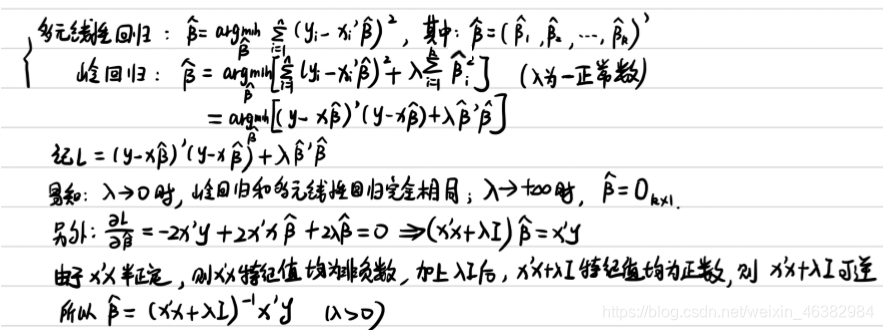 多元线性回归: β̂ = argmin_β̂ Σ_{i=1}^{n} (y_i - x_i'β̂)², 其中: β̂ = (β̂_1, β̂_2, ⋯, β̂_k)'
岭回归: β̂ = argmin_β̂ [Σ_{i=1}^{n} (y_i - x_i'β̂)² + λ Σ_{i=1}^{k} β̂_i²] (λ为一正常数)
= argmin_β̂ [(y - xβ̂)'(y - xβ̂) + λβ̂'β̂]
记 L = (y - xβ̂)'(y - xβ̂) + λβ̂'β̂
易知: λ → 0 时, 岭回归和多元线性回归完全相同; λ → +∞ 时, β̂ = 0_{k×1}.
另外: ∂L/∂β̂ = -2x'y + 2x'xβ̂ + 2λβ̂ = 0 ⇒ (x'x + λI) β̂ = x'y
由于 x'x 半正定, 则 x'x 特征值均为非负数, 加上 λI后, x'x + λI 特征值均为正数, 则 x'x + λI 可逆
所以 β̂ = (x'x + λI)⁻¹ x'y (λ > 0)
https://blog.csdn.net/weixin_46382984